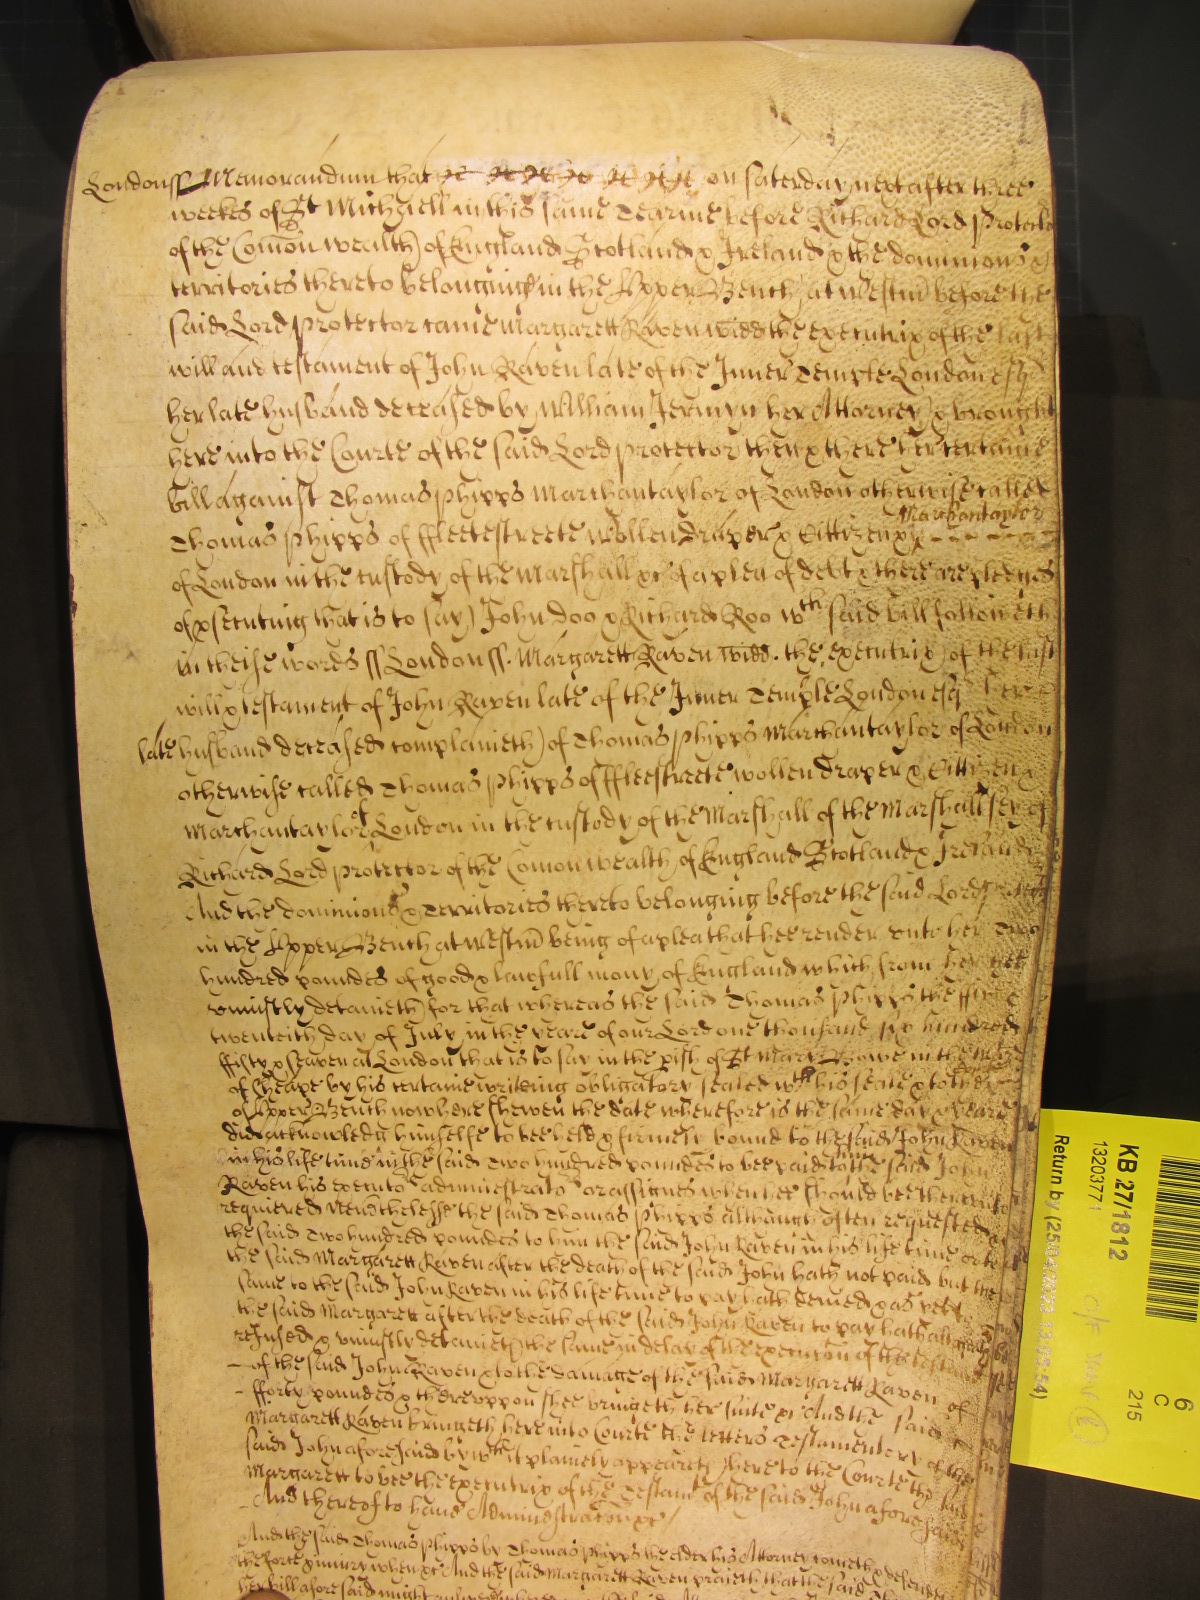 Londonss Memorandum that on Saterday next after three
weekes of St Michaell in this same Tearme before Richard Lord Protector
of the Comon wealth of England Scotland & Ireland & the dominions &
territories thereto belonging in the Upper Bench at Westm before the
said Lord Protector came Margarett Raven Widd the executrix of the last
will and testament of John Raven late of the Inner Temple London esq
her late husband deceased by William Jermyn her Attorney & brought
here into the Courte of the said Lord Protector then & there her certaine
bill against Thomas Phipps Marchantaylor of London otherwise called
Marchantaylor
Thomas Phipps of ffleetestreete Wollendraper & Cittizen &
of London in the custody of the Marshall &c of a plea of debt & there are pledges
of psecuting that is to say John Doo & Richard Roo wth said bill followeth
in theise words ss Londonss. Margarett Raven Widd. the executrix of the last
will & testament of John Raven late of the Inner Temple London esq her
late husband deceased complaineth of Thomas Phipps Marchantaylor of London
otherwise called Thomas Phipps of ffleestreete wollen draper & Cittizen &
Marchantaylor of London in the custody of the Marshall of the Marshallsey of
Richard Lord Protector of the Comon wealth of England Scotland & Ireland
And the dominions & Territories thereto belonging before the said Lord
in the Upper Bench at Westm being of a plea that hee render unto her Two
hundred poundes of good & lawfull mony of England which from her hee
uniustly detaineth for that whereas the said Thomas Phipps the
twenteith day of July in the yeare of our Lord one thousand six hundred
ffifty & seaven at London that is to say in the pish of St Mary Bowe in the
of Cheape by his certaine writeing obligatory sealed wth his seale & to the
of Upper Bench now here shewen the date wherefore is the same day & yeare
did acknowledg himselfe to bee held & firmely bound to the said John Raven
in his life time in the said Two hundred poundes to bee paid to the said John
Raven his executors administrators or assignes when hee should bee thereunto
requiered Neverthelesse the said Thomas Phipps although often requested
the said Two hundred poundes to him the said John Raven in his life time or to
the said Margarett Raven after the death of the said John hath not paid but the
same to the said John Raven in his life time to pay hath denied & as yet
the said Margarett after the death of the said John Raven to pay hath
refused & uniustly detaineth the same in delay of the execution of the
of the said John Raven & to the damage of the said Margarett Raven of
fforty poundes & thereuppon shee bringeth her suite &c And the said
Margarett Raven bringeth here into Courte the letters Testamentary of the
said John aforesaid by wch it plainely appeareth here to the Courte the said
Margarett to bee the executrix of the Testamt of the said John aforesaid
And thereof to have Administracon &c
And the said Thomas Phipps by Thomas Phipps the elder his Attorney cometh & defendeth
the force & iniury when &c And the said Margarett Raven praieth that the said
her bill aforesaid might
KB 27/1812
13203771
Return by (25/04/2023 13:05:54)
6
C
215